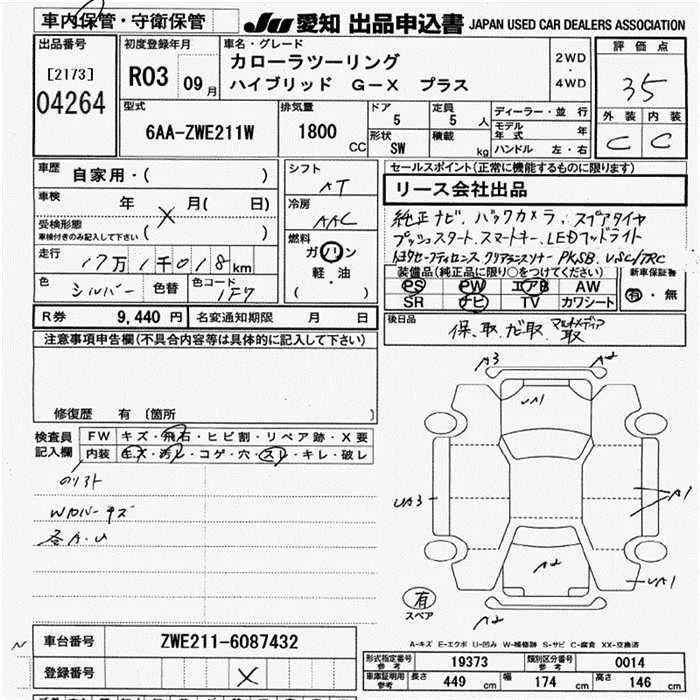 車内保管・守衛保管
JU 愛知 出品申込書 JAPAN USED CAR DEALERS ASSOCIATION
出品番号
[2173]
04264
初度登録年月
R03 09月
車名・グレード
カローラツーリング
ハイブリッド G-X プラス
2WD
・
4WD
評価点
35
外装 内装
C C
型式
6AA-ZWE211W
排気量
1800 CC
ドア
5
定員
5人
形状
SW
積載
kg
ディーラー・並行
モデル年式 年
ハンドル 左・右
車歴
自家用・( )
車検
年 月( 日)
受検形態
車検付きのみ記入して下さい
( )
走行
17万1千018km
色 シルバー 色替 色コード 1F7
シフト
AT
冷房
AAC
燃料
ガソリン
軽・油
( )
セールスポイント(正常に機能するものに限ります)
リース会社出品
純正ナビ、バックカメラ、スペアタイヤ
プッシュスタート、スマートキー、LEDフッドライト
トヨタセーフティセンス クリアランスソナー PKSB VSC/TRC
装備品(純正品に限り○をつけてください)
PS PW エアB AW
SR ナビ TV カワシート
新車保証書
有・無
R券 9,440円 名変通知期限 月 日
後日品
保、取、ナビ取、マルチメディア取
注意事項申告欄(不具合内容等は具体的に記入して下さい)
修復歴 有 〔箇所 〕
検査員記入欄
FW キズ・飛石・ヒビ割・リペア跡・X要
内装 キズ・汚レ・コゲ・穴・スレ・キレ・破レ
Wカバーキズ
各A.U
A3 A2
UA1
UA3
A1
A2
UA1
有
スペア
A2
A-キズ E-エクボ U-凹み W-補修跡 S-サビ C-腐食 XX-交換済
車台番号 ZWE211-6087432
登録番号 X
形式指定番号 参考 19373 類別区分番号 参考 0014
車庫証明用 参考 長さ 449 cm 幅 174 cm 高さ 146 cm